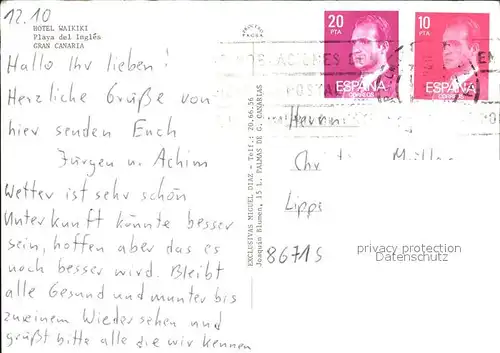 12.10
HOTEL WAIKIKI
Playa del Inglés
GRAN CANARIA
Hallo Ihr lieben!
Herzliche Grüße von
hier senden Euch
Jürgen u. Achim
Wetter ist sehr schön
Unterkunft könnte besser
sein, hoffen aber das es
noch besser wird. Bleibt
alle Gesund und munter bis
zu einem Wiedersehen und
grüßt bitte alle die wir kennen
EXCLUSIVAS MIGUEL DIAZ - Telf.: 20.66.56
Joaquín Blumen, 15 L. PALMAS DE G. CANARIAS
20
PTA
ESPAÑA
CORREOS
10
PTA
ESPAÑA
CORREOS
Herrn
Müller
Lipps
8671S
privacy protection
Datenschutz